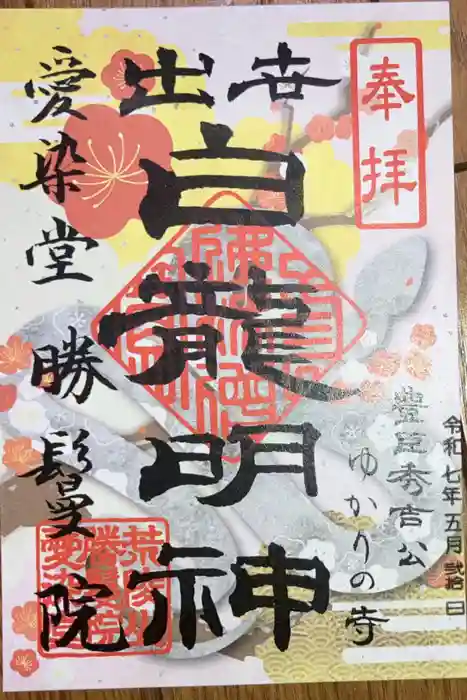 奉拝
出世
白龍明神
愛染堂 勝鬘院
豊臣秀吉公
ゆかりの寺
令和七年五月弐拾日